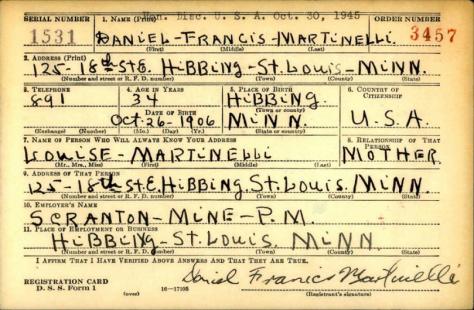 Hon. Disc. U. S. A. Oct. 30, 1945
SERIAL NUMBER 1. NAME (Print) ORDER NUMBER
1531 DANIEL-FRANCIS-MARTINELLI. 3457
(First) (Middle) (Last)
2. ADDRESS (Print)
125-18th ST E. HIBBING-ST. LOUIS-MINN.
(Number and street or R. F. D. number) (Town) (County) (State)
3. TELEPHONE 4. AGE IN YEARS 5. PLACE OF BIRTH 6. COUNTRY OF CITIZENSHIP
891 34 HIBBING.
(Town or county)
DATE OF BIRTH
Oct-26-1906 MINN. U.S.A.
(Exchange) (Number) (Mo.) (Day) (Yr.) (State or country)
7. NAME OF PERSON WHO WILL ALWAYS KNOW YOUR ADDRESS 8. RELATIONSHIP OF THAT PERSON
LOUISE-MARTINELLI MOTHER
(Mr., Mrs., Miss) (First) (Middle) (Last)
9. ADDRESS OF THAT PERSON
125-18th ST. E. HIBBING. ST. LOUIS. MINN
(Number and street or R. F. D. number) (Town) (County) (State)
10. EMPLOYER'S NAME
SCRANTON-MINE-P.M.
11. PLACE OF EMPLOYMENT OR BUSINESS
HIBBING-ST. LOUIS. MINN.
(Number and street or R. F. D. number) (Town) (County) (State)
I AFFIRM THAT I HAVE VERIFIED ABOVE ANSWERS AND THAT THEY ARE TRUE.
REGISTRATION CARD
D. S. S. Form 1 (over) 16-17105
Daniel Francis Martinelli
(Registrant's signature)